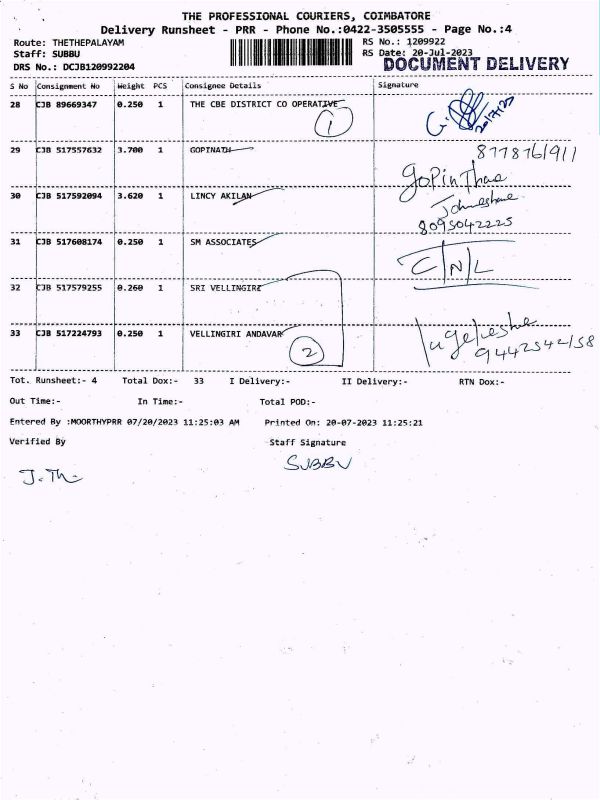 THE PROFESSIONAL COURIERS, COIMBATORE
Delivery Runsheet - PRR - Phone No.:0422-3505555 - Page No.:4
Route: THETHEPALAYAM RS No.: 1209922
Staff: SUBBU RS Date: 20-Jul-2023
DRS No.: DCJB120992204 DOCUMENT DELIVERY
S No Consignment No Weight PCS Consignee Details Signature
28 CJB 89669347 0.250 1 THE CBE DISTRICT CO OPERATIVE
1 20/7/23
29 CJB 517557632 3.700 1 GOPINATH 8778761911
GoPinThae
30 CJB 517592094 3.620 1 LINCY AKILAN
8095042225
31 CJB 517608174 0.250 1 SM ASSOCIATES
C/N/L
32 CJB 517579255 0.260 1 SRI VELLINGIRI
33 CJB 517224793 0.250 1 VELLINGIRI ANDAVAR
2 9442542158
Tot. Runsheet:- 4 Total Dox:- 33 I Delivery:- II Delivery:- RTN Dox:-
Out Time:- In Time:- Total POD:-
Entered By :MOORTHYPRR 07/20/2023 11:25:03 AM Printed On: 20-07-2023 11:25:21
Verified By Staff Signature
SUBBU